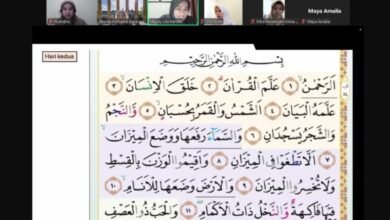 Maya Amalia
Maya Amalia
Hari kedua
بِسْمِ اللّٰهِ الرَّحْمٰنِ الرَّحِيْمِ
اَلرَّحْمٰنُۙ ١ عَلَّمَ الْقُرْاٰنَۗ ٢ خَلَقَ الْاِنْسَانَۙ ٣
عَلَّمَهُ الْبَيَانَ ٤ اَلشَّمْسُ وَالْقَمَرُ بِحُسْبَانٍۙ ٥ وَّالنَّجْمُ
وَالشَّجَرُ يَسْجُدَانِ ٦ وَالسَّمَاۤءَ رَفَعَهَا وَوَضَعَ الْمِيْزَانَۙ
٧ اَلَّا تَطْغَوْا فِى الْمِيْزَانِ ٨ وَاَقِيْمُوا الْوَزْنَ بِالْقِسْطِ
وَلَا تُخْسِرُوا الْمِيْزَانَ ٩ وَالْاَرْضَ وَضَعَهَا لِلْاَنَامِۙ ١٠
فِيْهَا فَاكِهَةٌ وَّالنَّخْلُ ذَاتُ الْاَكْمَامِۙ ١١ وَالْحَبُّ ذُو الْعَصْفِ